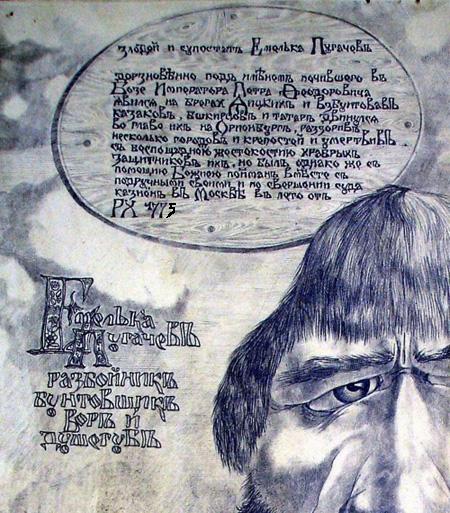 злодей и супостатъ Емелька Пугачевъ
дерзновѣнно подъ имѣнемъ почившего въ
Бозе Императора Петра Феодоровича
явился на брегах Яицких и взбунтовавъ
казаковъ, башкирцовъ и татаръ двинулся
во главѣ ихъ на Оренбургъ, раззоривъ
несколько городовъ и крепостей и умертвивъ
съ беспощадною жестокостию храбрыхъ
защитниковъ ихъ, но былъ однако же съ
помощию Божиею пойманъ вмѣсте съ
подручными своими и по свершении суда
казнѣнъ въ Москвѣ въ лето отъ
РХ 1775
Емелька
Пугачевъ
разбойникъ
бунтовщикъ
воръ и
душегубъ